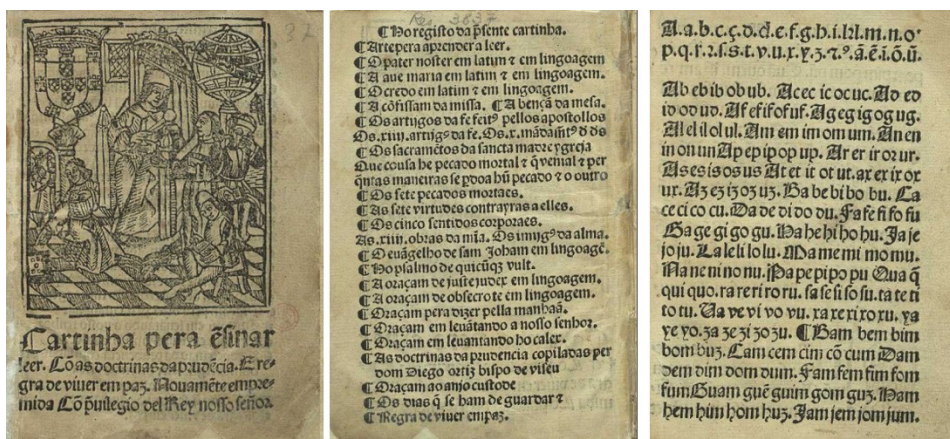 Cartinha pera ẽsinar
leer. Cõ as doctrinas da prudẽcia. E re-
gra de viuer em paz. Nouamẽte empre-
mida Cõ p̃uilegio del Rey nosso señor.
Res. 3637
¶ No registo da p̃sente cartinha.
¶ Arte pera aprender a leer.
¶ O pater noster em latim ⁊ em lingoagem
¶ A aue maria em latim ⁊ em lingoagem.
¶ O credo em latim ⁊ em lingoagem.
¶ A cõfissam da missa. ¶ A bençã da mesa.
¶ Os artijgos da fe feitꝰ pellos apostollos
Os .xiiij. artigꝰ da fe. Os .x. mãdamẽtꝰ
¶ Os sacramẽtos da sancta madre ygreja
Que cousa he pecado mortal ⁊ q̃ venial ⁊ per
q̃ntas maneiras se pdoa hũ pecado ⁊ o outro
¶ Os sete pecados mortaes.
¶ As sete virtudes contrayras a elles.
¶ Os cinco sentidos corporaes.
As .xiiij. obras da mĩa. Os imijgꝰ da alma.
¶ O euãgelho de sam Joham em lingoagẽ.
¶ Ho psalmo de quicũq̃ vult.
¶ A oraçam de juste judex em lingoagem.
¶ A oraçam de obsecro te em lingoagem.
¶ Oraçam pera dizer pella manhaã.
¶ Oraçam em leuãtando a nosso senhor.
¶ Oraçam em leuantando ho calex.
¶ As doctrinas da prudencia copiladas per
dom Diego ortiz bispo de viseu
¶ Oraçam ao anjo custode
¶ Os dias q̃ se ham de guardar ⁊
¶ Regra de viuer em paz.
A.a.b.c.ç.d.d.e.f.g.h.i.l.l.m.n.o
p.q.r.ꝛ.ſ.s.t.v.u.x.y.ȝ.⁊.ꝰ.ã.ẽ.ĩ.õ.ũ.
Ab eb ib ob ub. Ac ec ic oc uc. Ad ed
id od ud. Af ef if of uf. Ag eg ig og ug.
Al el il ol ul. Am em im om um. An en
in on un Ap ep ip op up. Ar er ir or ur.
As es is os us At et it ot ut. ax er ix ox
ux. Az ez iz oz uz. Ba be bi bo bu. Ca
ce ci co cu. Da de di do du. Fa fe fi fo fu
Ga ge gi go gu. Ha he hi ho hu. Ja je
jo ju. La le li lo lu. Ma me mi mo mu.
Na ne ni no nu. Pa pe pi po pu Qua q̃
qui quo. ra re ri ro ru. sa se si so su. ta te ti
to tu. Va ve vi vo vu. xa xe xi xo xu. ya
ye yo. za ze zi zo zu. ¶ Bam bem bim
bom buz. Cam cem cim cõ cum Dam
dem dim dom dum. Fam fem fim fom
fum Guam guẽ guim gom guz. Ham
hem him hom huz. Jam jem jom jum.